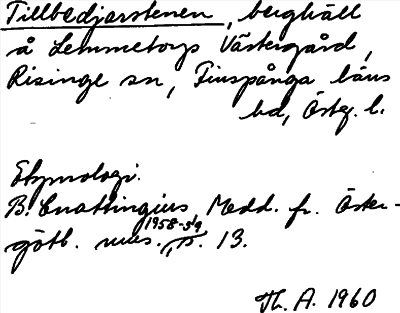 Tillbedjarstenen, berghäll
å Lemmetorps Västergård,
Risinge sn, Finspånga läns
hd, Östg. l.
Etymologi.
B. Cnattingius, Medd. fr. Öster-
götl. mus. 1958-59, s. 13.
Th. A. 1960